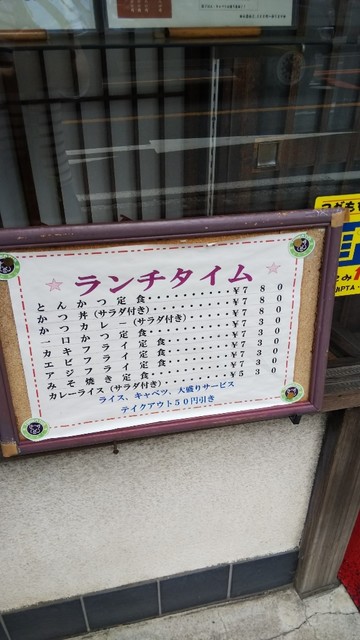 ☆ランチタイム☆
とんかつ定食・・・・・・・・・¥780
かつ丼(サラダ付き)・・・・・・¥780
かつカレー(サラダ付き)・・・・¥780
一口かつ定食・・・・・・・・・¥730
カキフライ定食・・・・・・・・¥730
エビフライ定食・・・・・・・・¥730
アジフライ定食・・・・・・・・¥730
みそ焼き定食・・・・・・・・・¥730
カレーライス(サラダ付き)・・・¥530
ライス、キャベツ、大盛りサービス
テイクアウト50円引き